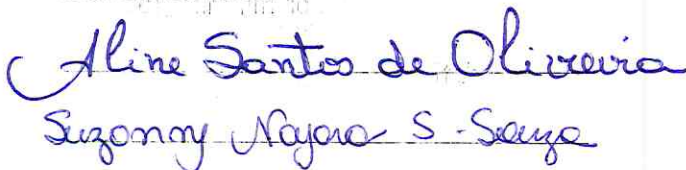 Aline Santos de Oliveira
Suzanny Nayara S. Souza